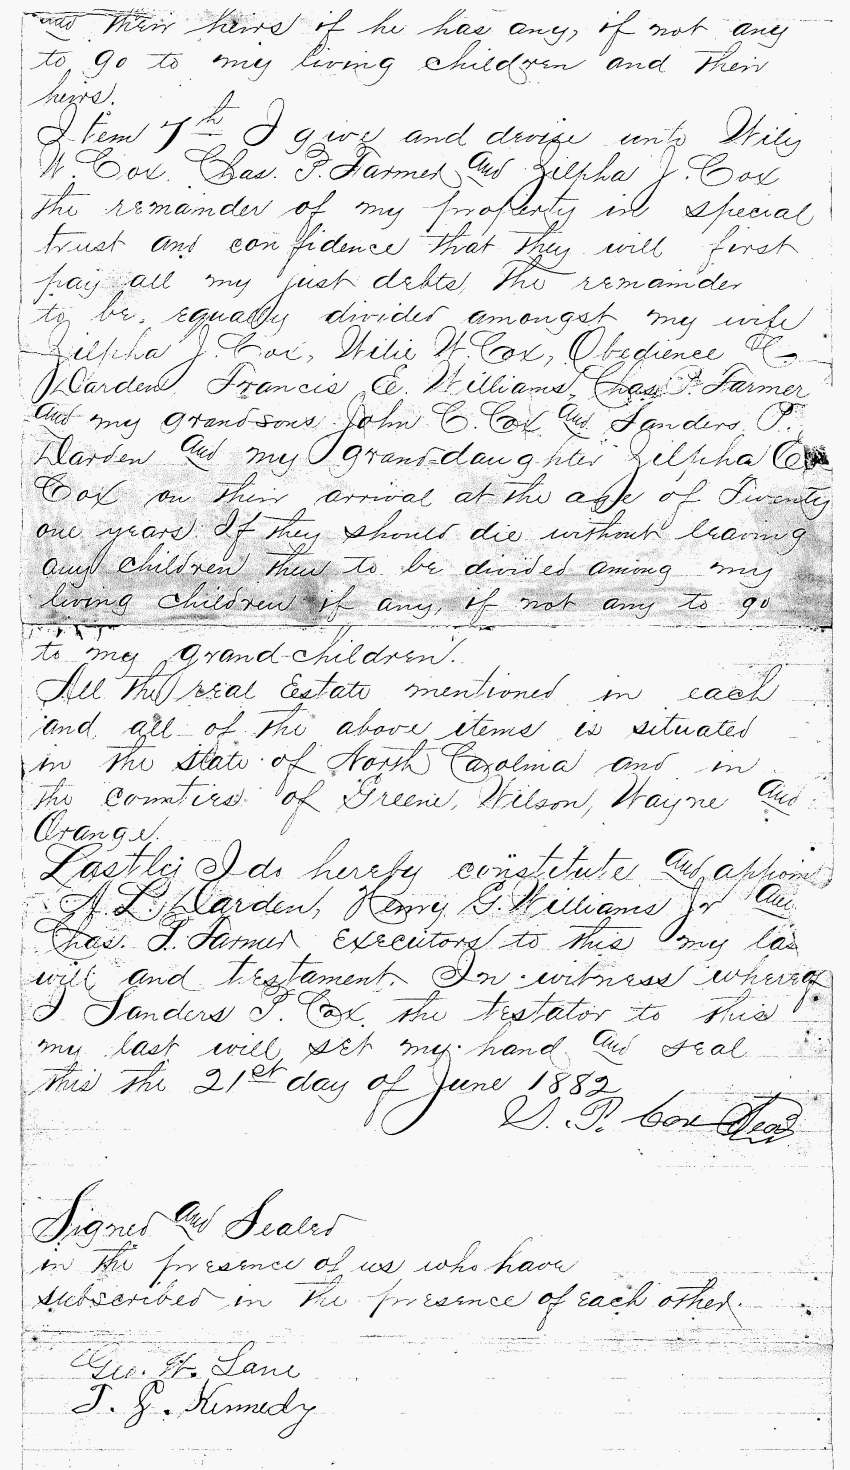 and their heirs if he has any, if not any
to go to my living children and their
heirs.
Item 7th I give and devise unto Wiley
W. Cox, Chas. P. Farmer and Zilpha J. Cox
the remainder of my property in special
trust and confidence that they will first
pay all my just debts, the remainder
to be, equally divided amongst my wife
Zilpha J. Cox, Wilie W. Cox, Obedience C.
Darden, Francis E. Williams, Chas. P. Farmer
and my grandsons John C. Cox and Sanders P.
Darden and my grand-daughter Zilpha E.
Cox on their arrival at the age of Twenty
one years. If they should die without leaving
any children then to be divided among my
living children if any, if not any to go
to my grand-children.
All the real Estate mentioned in each
and all of the above items is situated
in the state of North Carolina and in
the counties of Greene, Wilson, Wayne and
Orange.
Lastly I do hereby constitute and appoin
A. L. Darden, Henry G. Williams Jr and
Chas. P. Farmer executors to this my las
will and testament. In witness whereof
I Sanders P. Cox the testator to this
my last will set my hand and seal
this the 21st day of June 1882
S. P. Cox Seal
Signed and Sealed
in the presence of us who have
subscribed in the presence of each other.
Geo. W. Lane
T. E. Kennedy